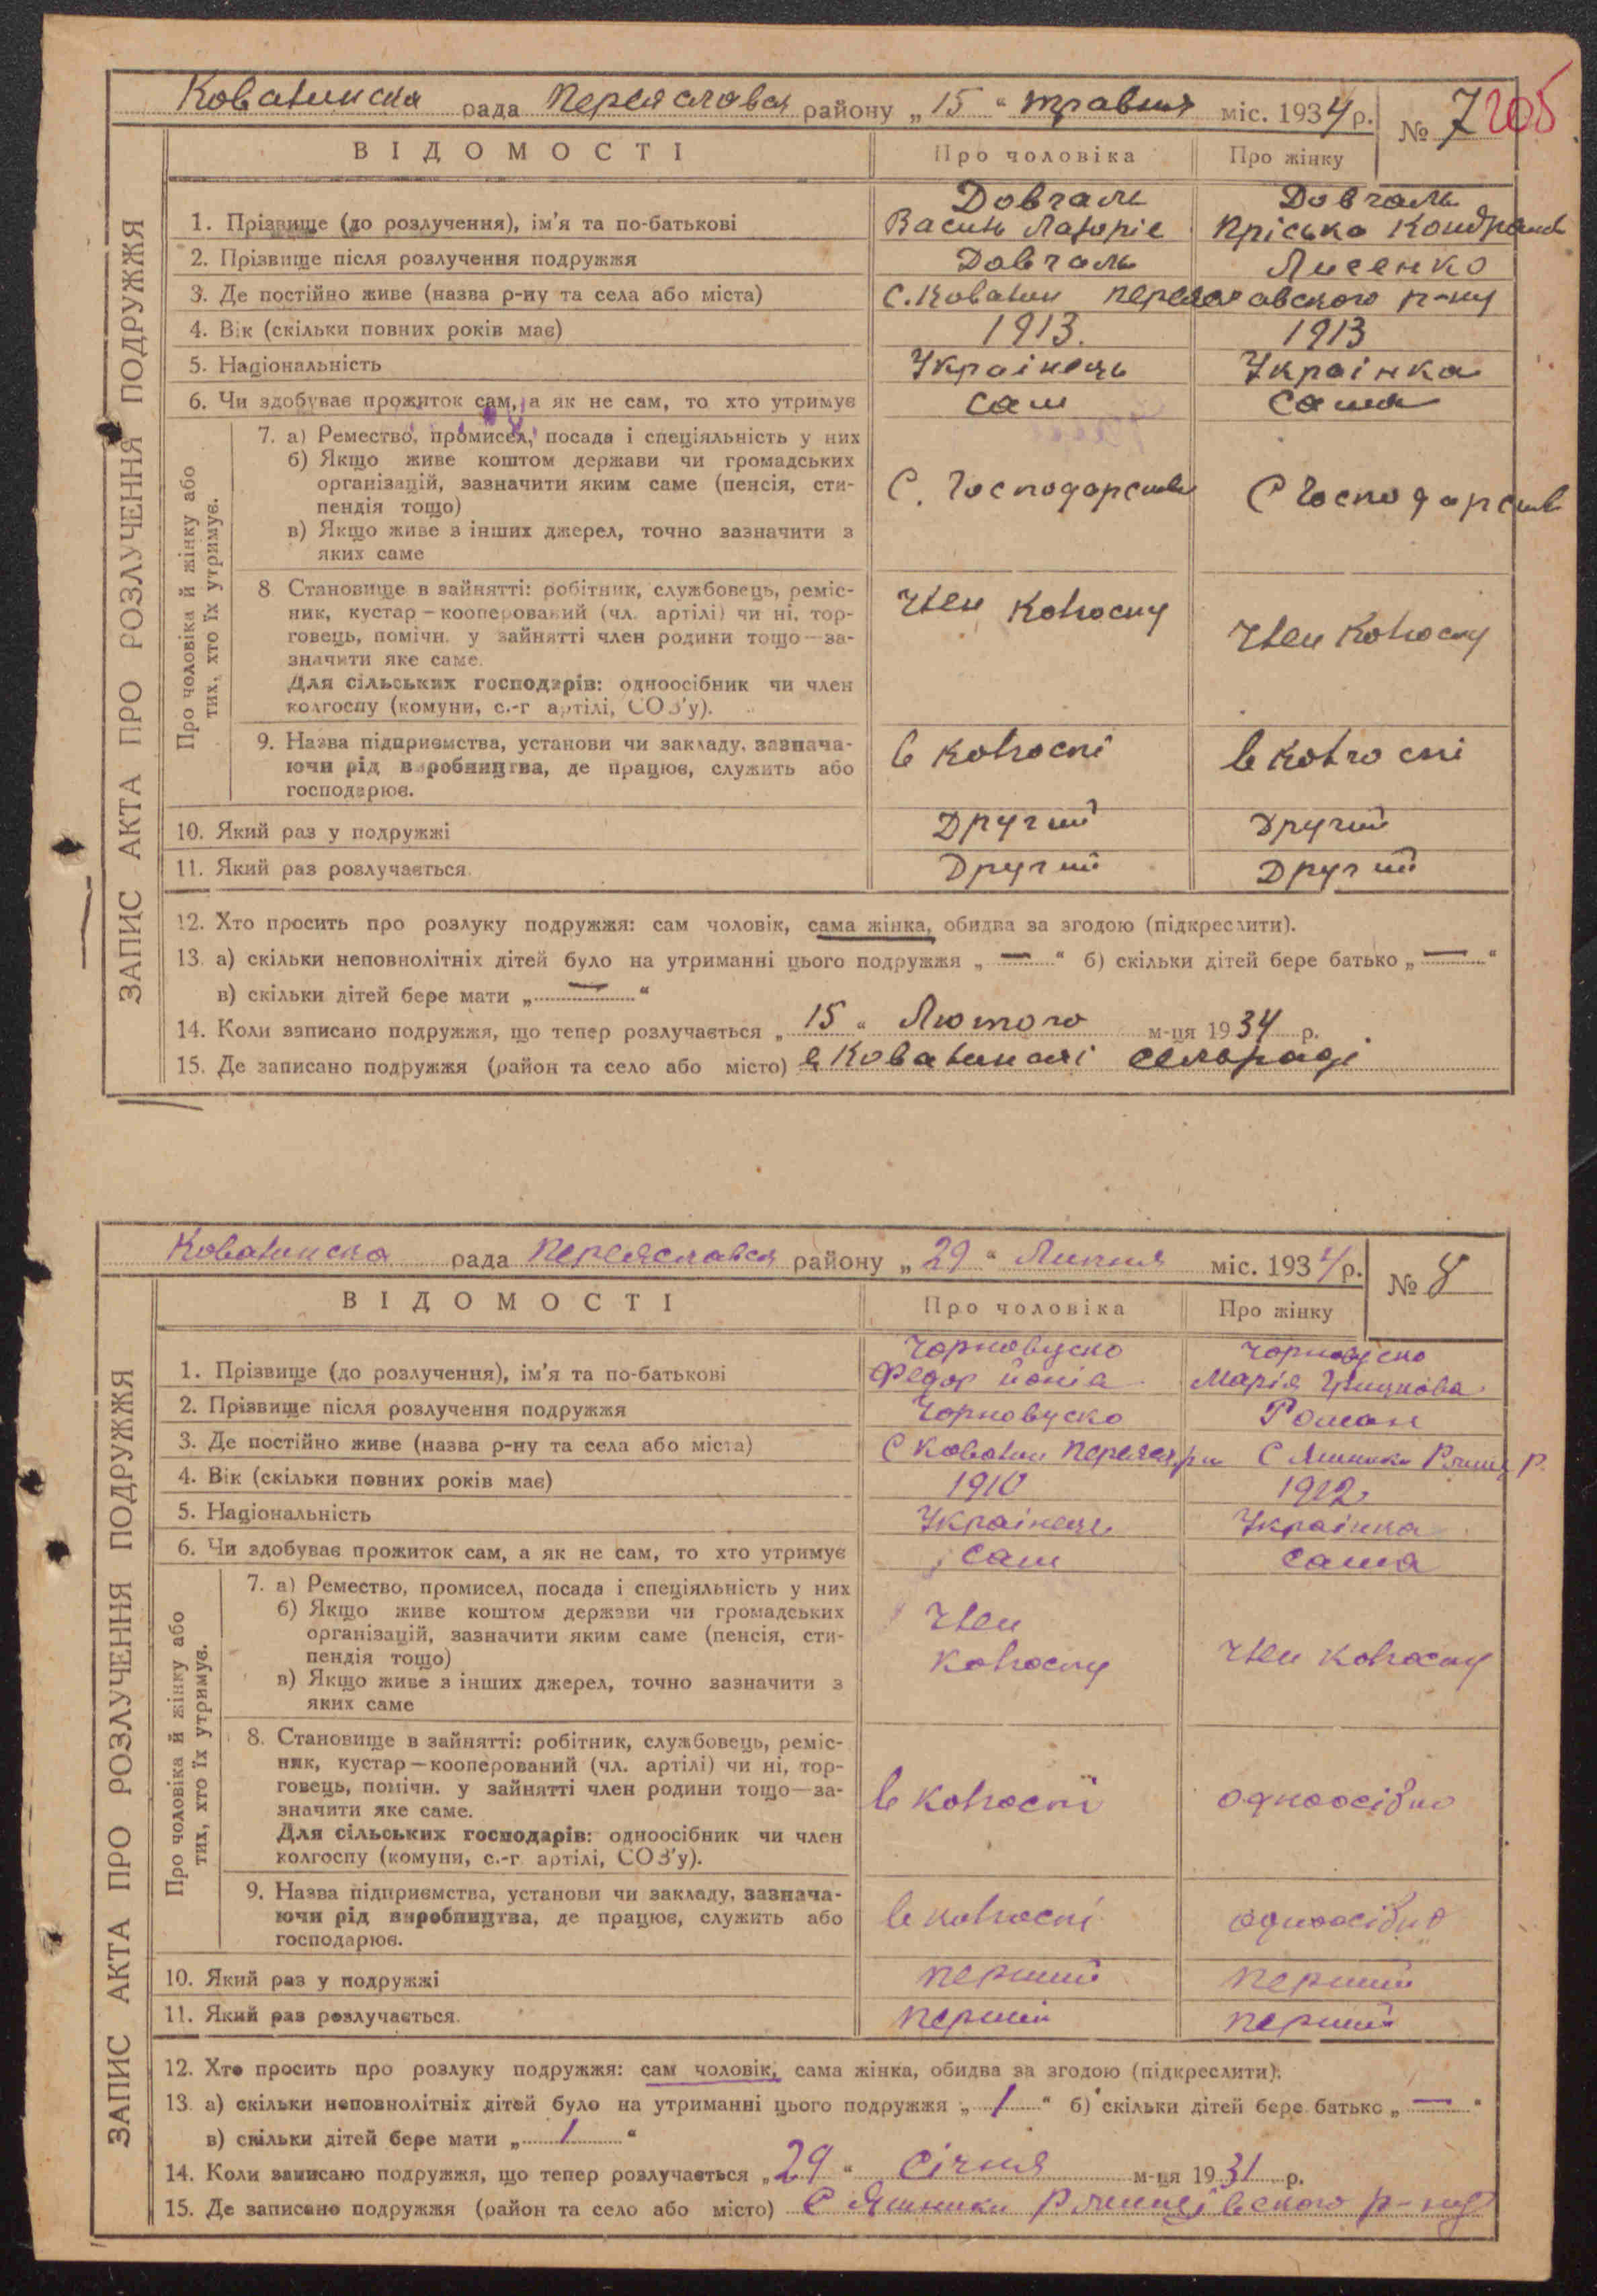 ЗАПИС АКТА ПРО РОЗЛУЧЕННЯ ПОДРУЖЖЯ
Коватинска рада Переяслався району „15“ травня міс. 1934 р. № 7 205
ВІДОМОСТІ Про чоловіка Про жінку
Довгаль Довгаль
1. Прізвище (до розлучення), ім'я та по-батькові Василь Пріська
2. Прізвище після розлучення подружжя Довгаль Лисенко
3. Де постійно живе (назва р-ну та села або міста) С. Коватин р-ну
4. Вік (скільки повних років має) 1913. 1913
5. Національність Українець Українка
6. Чи здобуває прожиток сам, а як не сам, то хто утримує сам сама
Про чоловіка й жінку або тих, хто їх утримує.
7. а) Ремество, промисел, посада і спеціяльність у них
б) Якщо живе коштом держави чи громадських
організацій, зазначити яким саме (пенсія, сти- С. Господарств С Господарств
пендія тощо)
в) Якщо живе з інших джерел, точно зазначити з
яких саме
8 Становище в зайнятті: робітник, службовець, реміс- член колгоспу
ник, кустар—кооперований (чл. артілі) чи ні, тор-
говець, помічн. у зайнятті член родини тощо—за- член колгоспу
значити яке саме.
Для сільських господарів: одноосібник чи член
колгоспу (комуни, с.-г артілі, СОЗ'у).
9. Назва підприємства, установи чи закладу, зазнача- в колгоспі в колгоспі
ючи рід виробництва, де працює, служить або
господарює.
10. Який раз у подружжі Другий другий
11. Який раз розлучається. Другий Другий
12. Хто просить про розлуку подружжя: сам чоловік, сама жінка, обидва за згодою (підкреслити).
13. а) скільки неповнолітніх дітей було на утриманні цього подружжя „—“ б) скільки дітей бере батько „—“
в) скільки дітей бере мати „—“
14. Коли записано подружжя, що тепер розлучається „15“ Лютого м-ця 1934 р.
15. Де записано подружжя (район та село або місто) в сельраді
ЗАПИС АКТА ПРО РОЗЛУЧЕННЯ ПОДРУЖЖЯ
Коватинска рада Переяслався району „29“ Липня міс. 1934 р. № 8
ВІДОМОСТІ Про чоловіка Про жінку
Чорновуско Чорновуско
1. Прізвище (до розлучення), ім'я та по-батькові Федор Марія
2. Прізвище після розлучення подружжя Чорновуско Роман
3. Де постійно живе (назва р-ну та села або міста) С Коватин С
4. Вік (скільки повних років має) 1910 1912
5. Національність Українець Українка
6. Чи здобуває прожиток сам, а як не сам, то хто утримує сам сама
Про чоловіка й жінку або тих, хто їх утримує.
7. а) Ремество, промисел, посада і спеціяльність у них
б) Якщо живе коштом держави чи громадських член
організацій, зазначити яким саме (пенсія, сти-
пендія тощо) колгоспу член колгоспу
в) Якщо живе з інших джерел, точно зазначити з
яких саме
8. Становище в зайнятті: робітник, службовець, реміс-
ник, кустар—кооперований (чл. артілі) чи ні, тор-
говець, помічн. у зайнятті член родини тощо—за- в колгоспі одноосібно
значити яке саме.
Для сільських господарів: одноосібник чи член
колгоспу (комуни, с.-г. артілі, СОЗ'у).
9. Назва підприємства, установи чи закладу, зазнача- в колгоспі одноосібно
ючи рід виробництва, де працює, служить або
господарює.
10. Який раз у подружжі перший перший
11. Який раз розлучається. перший перший
12. Хто просить про розлуку подружжя: сам чоловік, сама жінка, обидва за згодою (підкреслити).
13. а) скільки неповнолітніх дітей було на утриманні цього подружжя „1“ б) скільки дітей бере батько „—“
в) скільки дітей бере мати „1“
14. Коли записано подружжя, що тепер розлучається „29“ січня м-ця 1931 р.
15. Де записано подружжя (район та село або місто) С р-ну